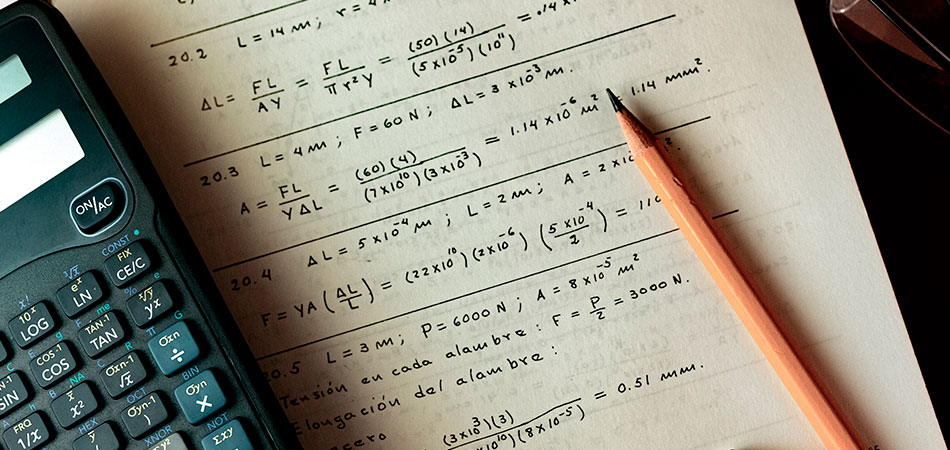 20.2 L = 14 m ; r =
ΔL = FL/AY = FL/πr²Y = (50)(14)/(5×10⁻⁵)(10¹¹) = .14×
20.3 L = 4 m ; F = 60 N ; ΔL = 3×10⁻³ m.
A = FL/YΔL = (60)(4)/(7×10¹⁰)(3×10⁻³) = 1.14×10⁻⁶ m² 1.14 mm².
20.4 ΔL = 5×10⁻⁴ m ; L = 2 m ; A = 2×10
F = YA (ΔL/L) = (22×10¹⁰)(2×10⁻⁶) (5×10⁻⁴/2) = 110
20.5 L = 3 m ; P = 6000 N ; A = 8×10⁻⁵ m²
Tensión en cada alambre : F = P/2 = 3000 N.
Elongación del alambre :
(3×10³)(3)/ 10¹⁰)(8×10⁻⁵) = 0.51 mm.
ON/AC
CONST
FIX
CE/C
³√x
eˣ
LN
%
ˣ√y
yx
x!
10ˣ
LOG
me
TAN⁻¹
TAN
π
G
σxn
÷
COS⁻¹
COS
σxn-1
√x
BIN
σyn
×
SIN
NA
x²
OCT
σyn-1
)
NOT
Σxy
FRQ
1/x
HEX
XNOR